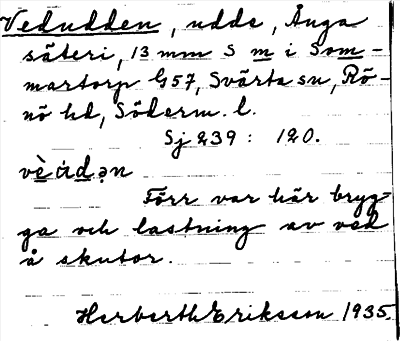 Vedudden, udde, Ånga
säteri, 13 mm S m i Som-
martorp G57, Svärta sn, Rö-
nö hd, Söderm. l.
Sj 239 : 120.
Förr var här bryg-
ga och lastning av ved
å skutor.
Herberth Eriksson 1935.